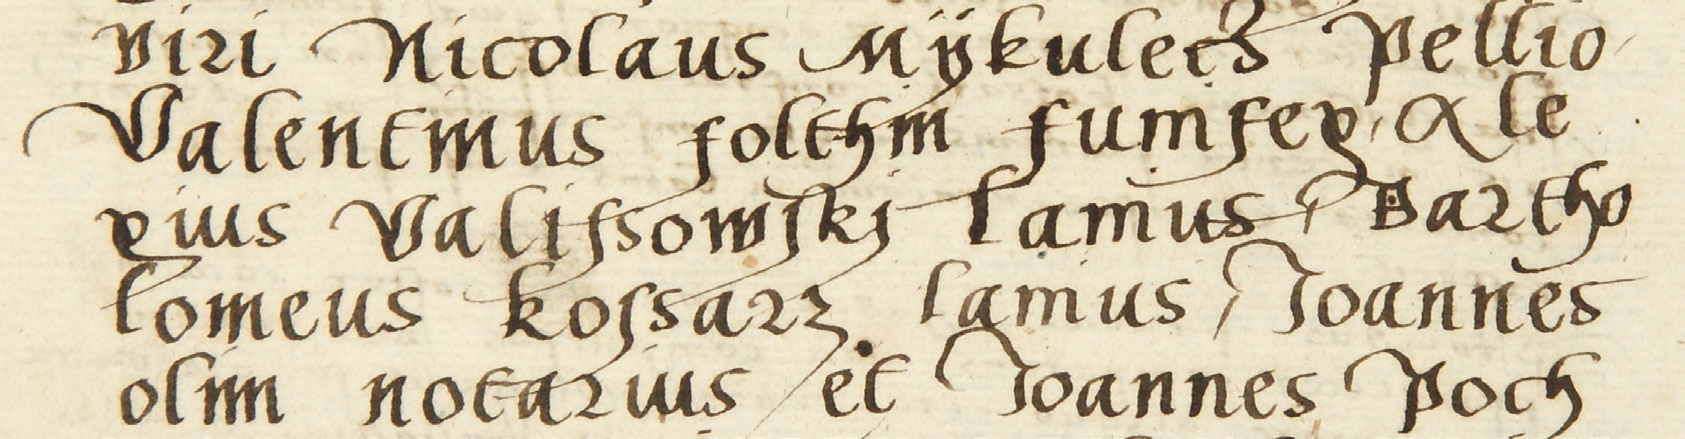 viri Nicolaus Mÿkulecz Pellio,
Valentinus folthin fumfex, Ale
xius Valifsowski lamus, Bartho
lomeus kofsarz lamus, Joannes
olim notarius et Joannes Poch